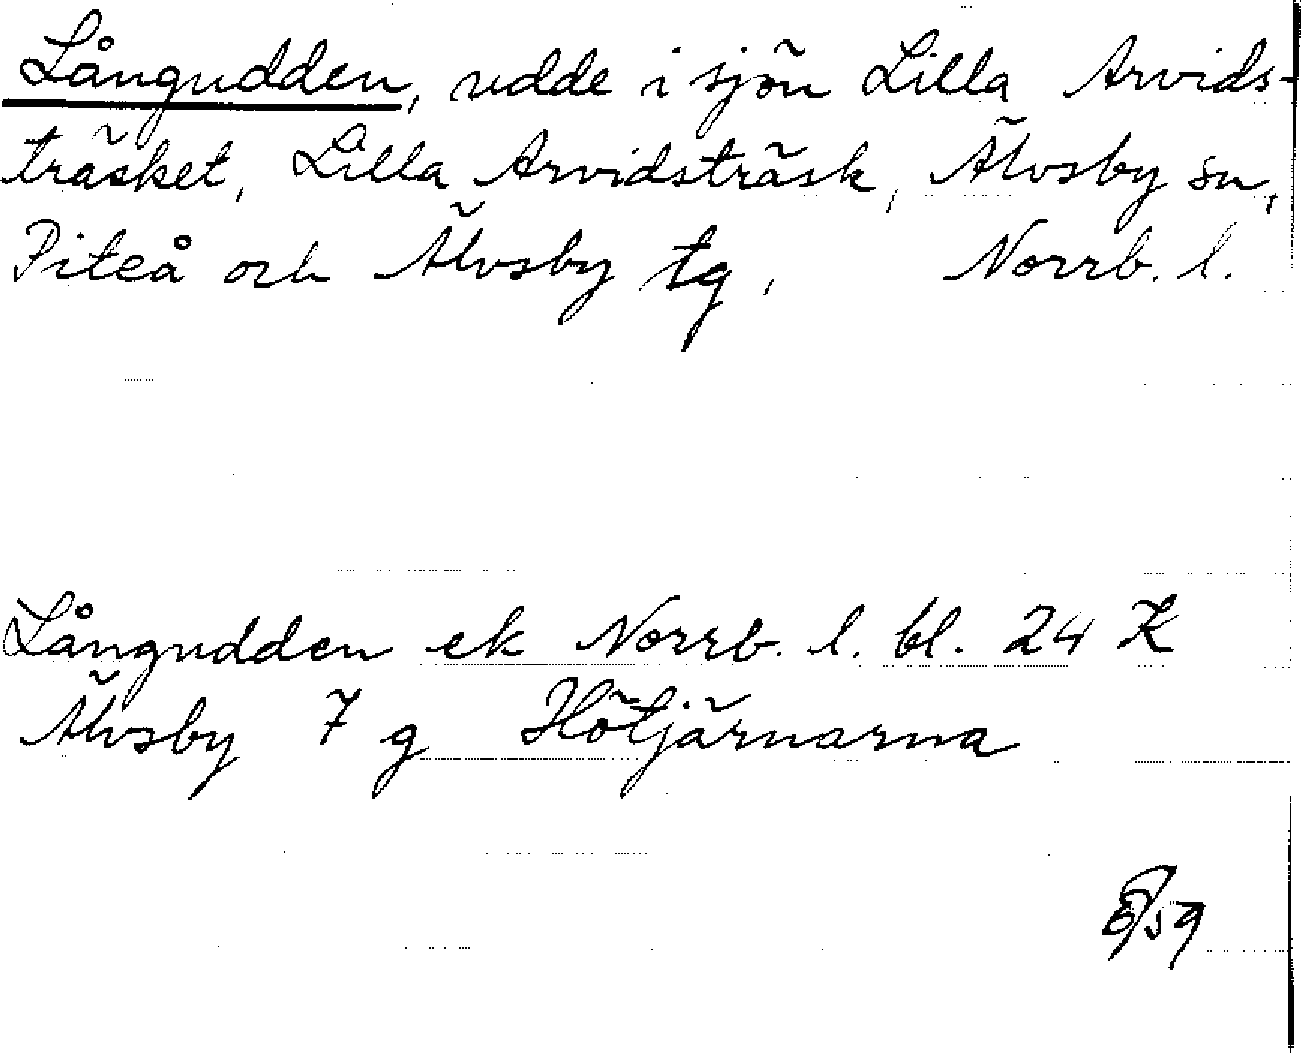 Långudden, udde i sjön Lilla Arvids-
träsket, Lilla Arvidsträsk, Älvsby sn,
Piteå och Älvsby tg, Norrb. l.
Långudden ek Norrb. l. bl. 24 K
Älvsby 7 g Hötjärnarna